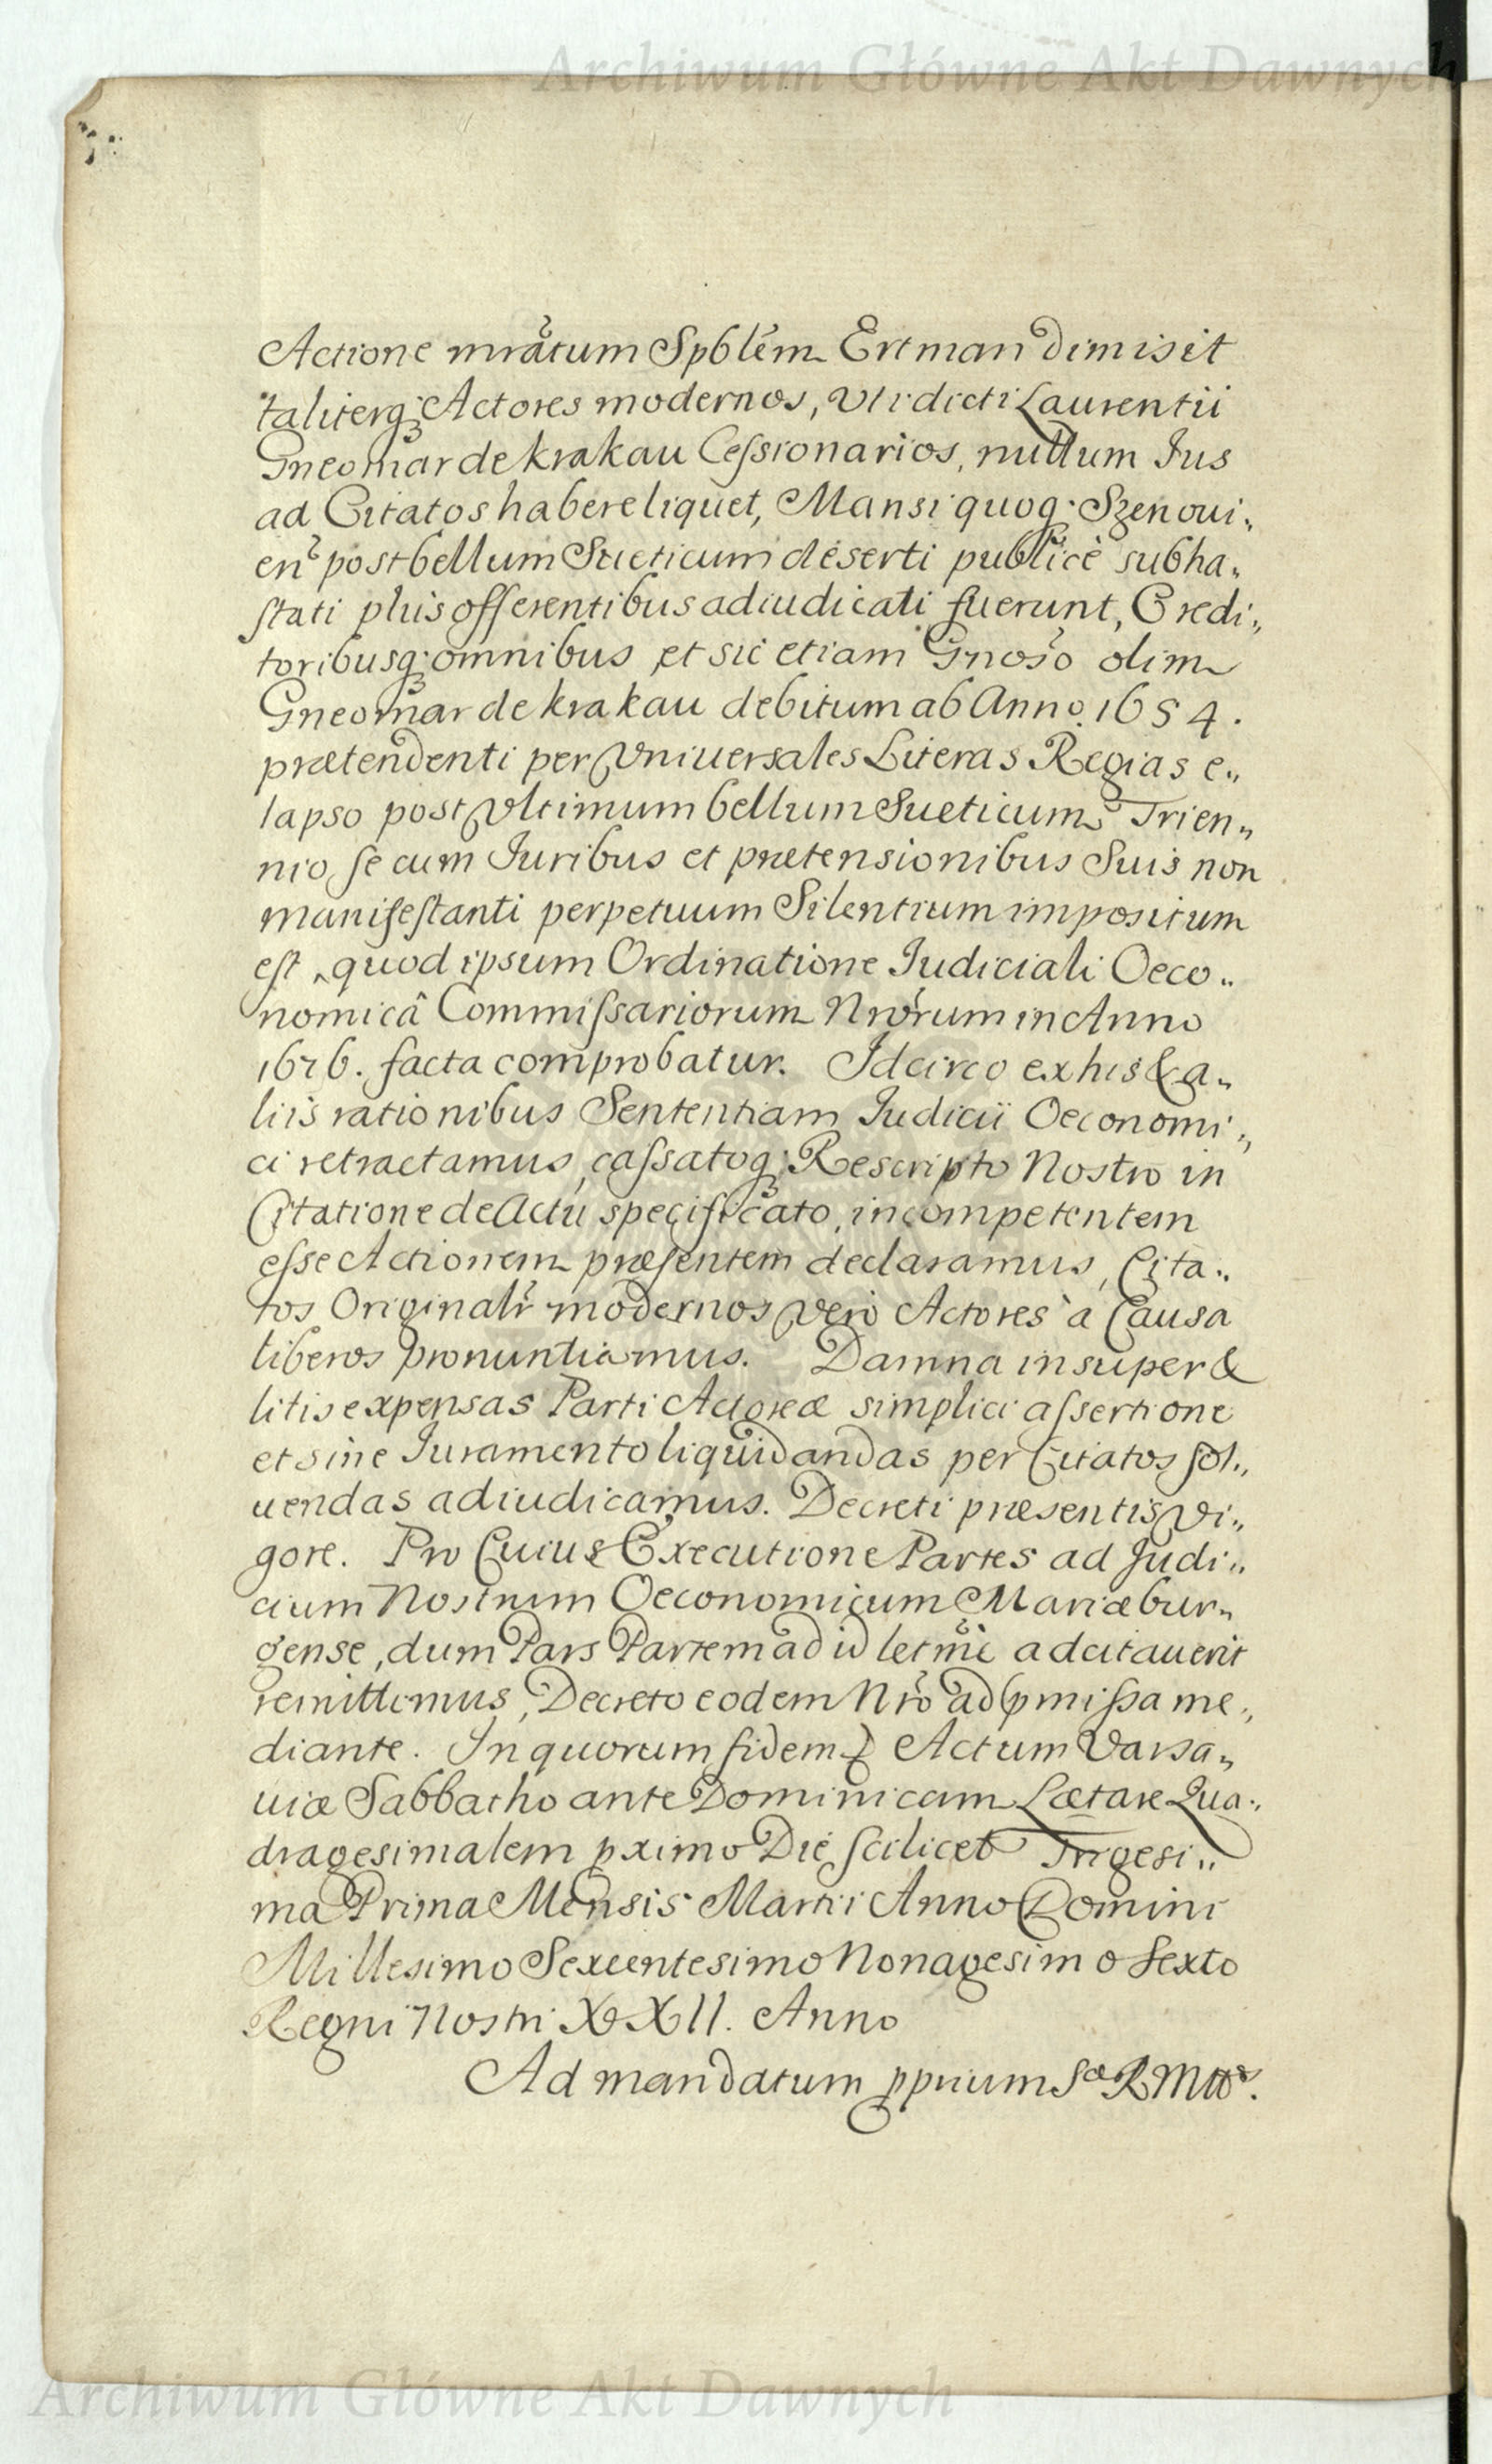 Archiwum Główne Akt Dawnych
Actione mrãtum Spblem Ertman dimisit
taliterq; Actores modernos, Vti dicti Laurentii
Gneomar de krakau Cessionarios, nullum Jus
ad Citatos habere liquet, Mansi quoq; Szenoui„
en̄ post bellum Sueticum deserti publice subha„
stati plus offerentibus adiudicati fuerunt, Credi„
toribusq; omnibus et sic etiam Gnoso olim
Gneomar de krakau debitum ab Anno 1654.
prætendenti per Vniuersales Literas Regias e„
lapso post Vltimum bellum Sueticum Trien„
nio, se cum Juribus et prætensionibus Suis non
manifestanti perpetuum Silentium impositum
est, quod ipsum Ordinatione Judiciali Oeco„
nomicâ Commissariorum Nrorum in Anno
1676. facta comprobatur. Idcirco ex his & a„
liis rationibus Sententiam Judicii Oeconomi„
ci retractamus, cassatoq; Rescripto Nostro in
Citatione de Actu specificato, incompetentem
esse Actionem præsentem declaramus, Cita„
tos Originalr modernos Vero Actores à Causa
liberos pronuntiamus. Damna insuper &
litis expensas Parti Actoreæ simplici assertione
et sine Juramento liquidandas per Citatos sol„
uendas adiudicamus. Decreti præsentis Vi„
gore. Pro Cuius Executione Partes ad Judi„
cium Nostrum Oeconomicum Mariæbur„
gense, dum Pars Partem ad id letmē adcitauerit
remittimus, Decreto eodem Nro ad pmissa me„
diante. In quorum fidem Actum Varsa„
uiæ Sabbatho ante Dominicam Lætare Qua„
dragesimalem pximo Die scilicet Trigesi„
ma Prima Mensis Martii Anno Domini
Millesimo Sexcentesimo Nonagesimo Sexto
Regni Nostri XXII. Anno
Ad mandatum pprium Sæ R Mttis.
Archiwum Główne Akt Dawnych